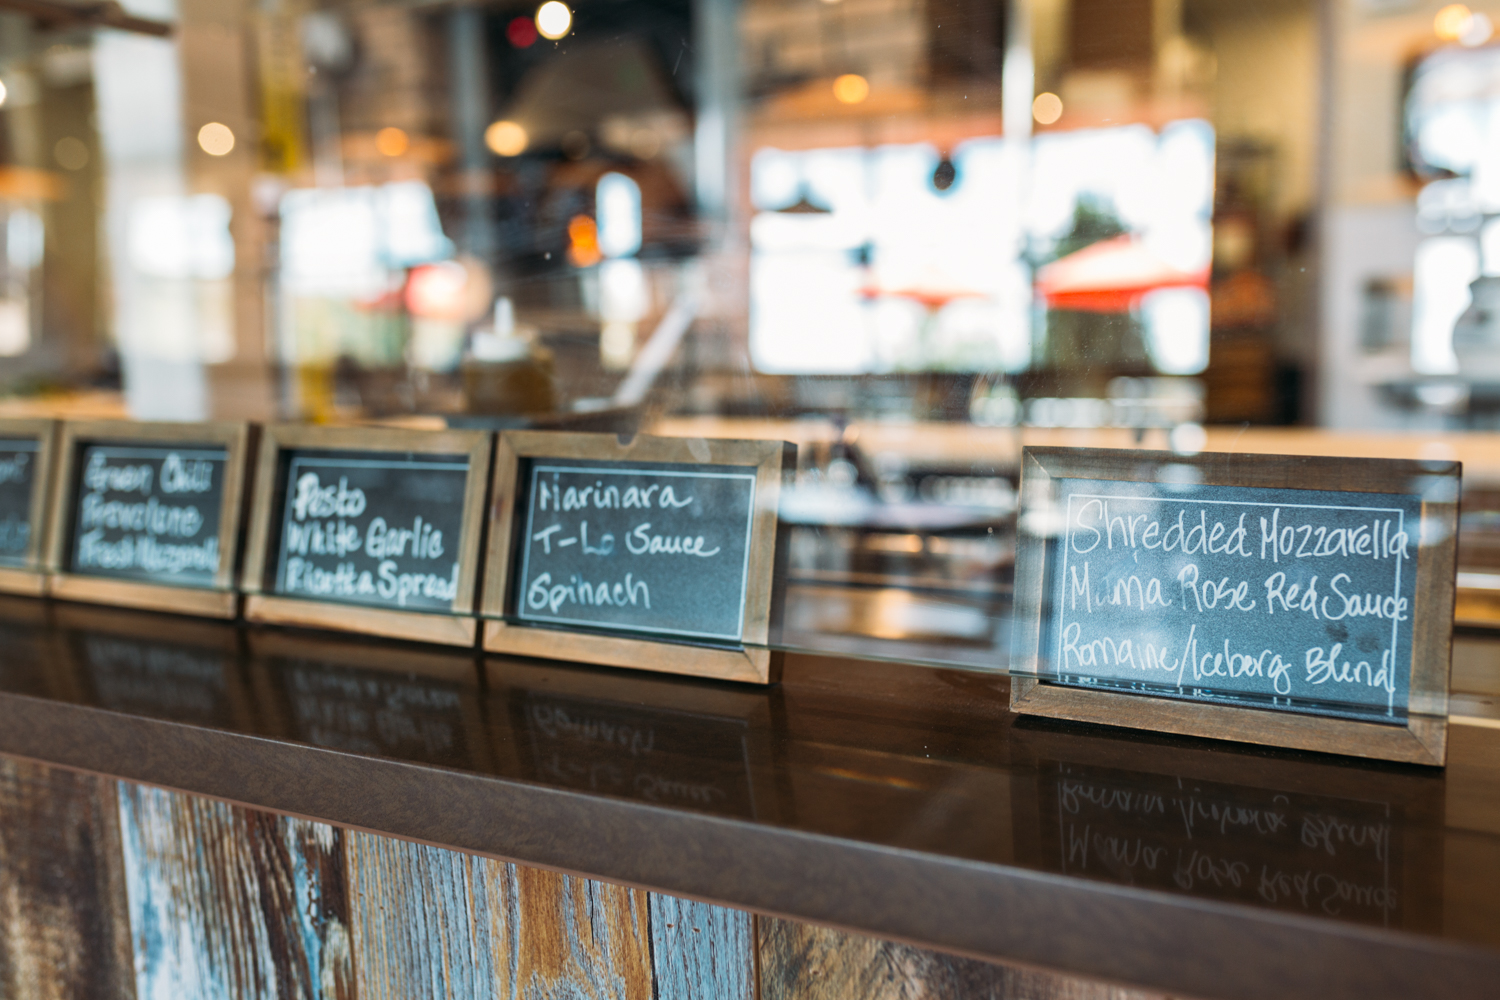 Green Chili
Provolone
Fresh Mozzarella
Pesto
White Garlic
Ricotta Spread
Marinara
T-Lo Sauce
Spinach
Shredded Mozzarella
Mama Rose Red Sauce
Romaine/Iceberg Blend